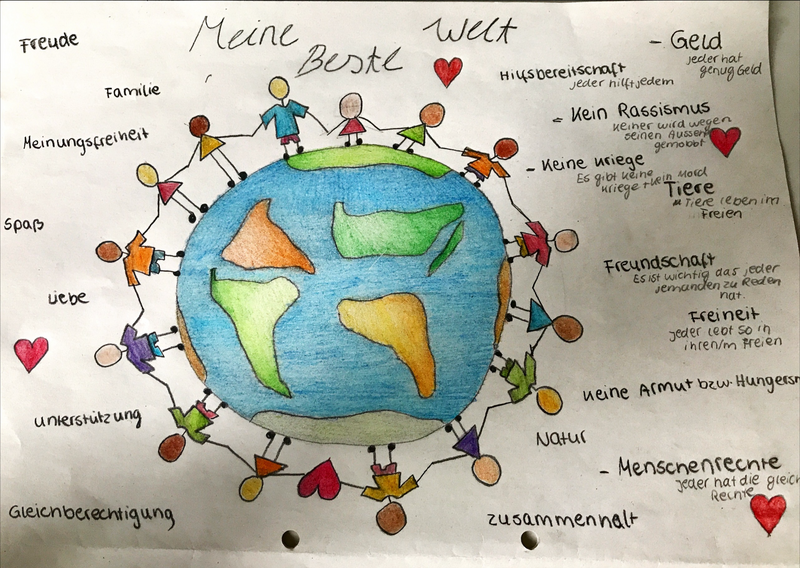 Meine Beste Welt
Freude
Familie
Meinungsfreiheit
Spaß
Liebe
Unterstützung
Gleichberechtigung
Hilfsbereitschaft
jeder hilft jedem
- Geld
jeder hat
genug Geld
- Kein Rassismus
Keiner wird wegen
seinen Aussehn
gemobbt
- Keine Kriege
Es gibt keine
Kriege + kein Mord
Tiere
Tiere leben im
Freien
Freundschaft
Es ist wichtig das jeder
jemanden zu Reden
hat.
Freiheit
jeder lebt so in
ihren/m Freien
Keine Armut bzw. Hungersn
Natur
- Menschenrechte
jeder hat die gleich
Rechte
Zusammenhalt